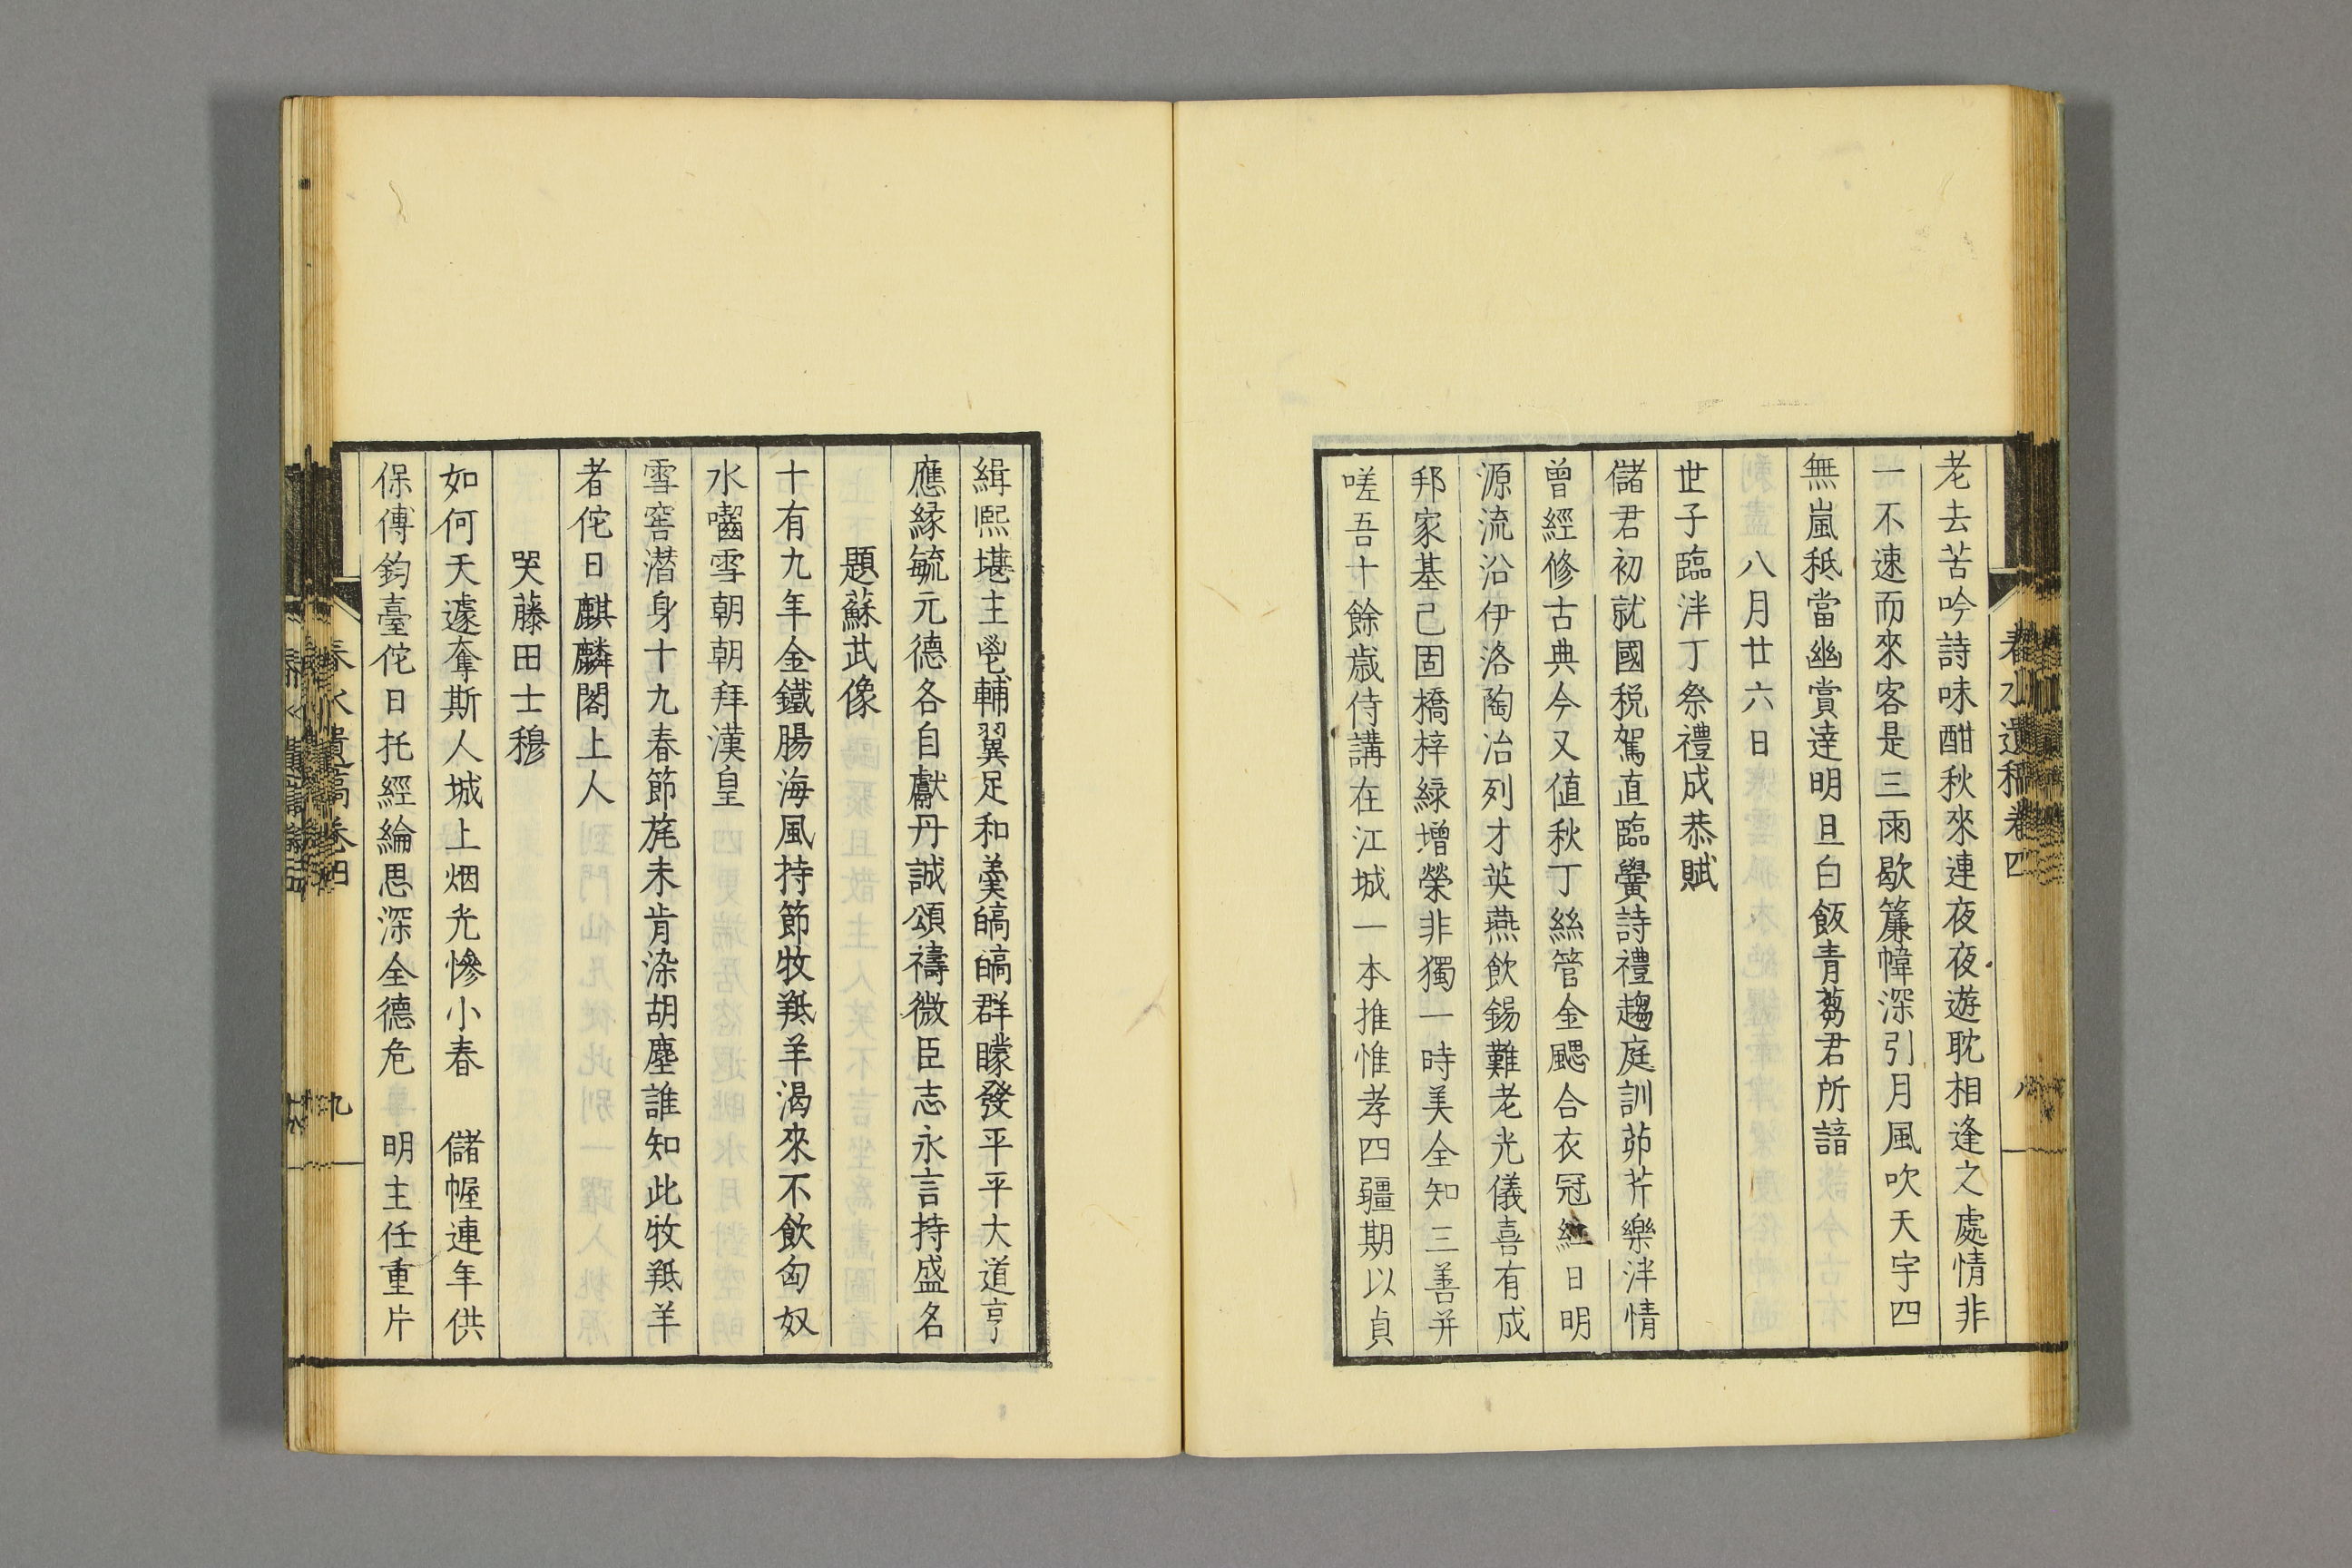 老去苦吟詩味酣秋來連夜夜遊耽相逢之處情非
一不速而來客是三雨歇簾幃深引月風吹天宇四
無嵐秪當幽賞達明旦白飯青蒭君所諳
八月廿六日
世子臨泮丁祭禮成恭賦
儲君初就國税駕直臨黌詩禮趨庭訓茆芹樂泮情
曾經修古典今又値秋丁絲管金颸合衣冠紅日明
源流沿伊洛陶冶列才英燕飲錫難老光儀喜有成
邦家基已固橋梓緑增榮非獨一時美全知三善并
嗟吾十餘歳侍講在江城一本推惟孝四疆期以貞
緝熙堪主鬯輔翼足和羹皜皜群矇發平平大道亨
應緣毓元德各自獻丹誠頌禱微臣志永言持盛名
題蘇武像
十有九年金鐵腸海風持節牧羝羊渴來不飲匈奴
水囓雪朝朝拜漢皇
雪窖潜身十九春節旄未肯染胡塵誰知此牧羝羊
者佗日麒麟閣上人
哭藤田士穆
如何天遽奪斯人城上烟光慘小春　儲幄連年供
保傳鈞臺佗日托經綸思深全德危　明主任重片
春水遺稿卷四
八
春水遺稿卷四
九